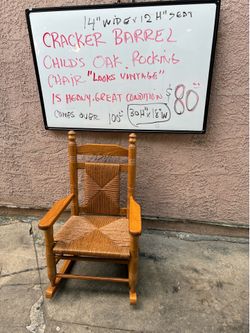 14" WIDE X 12 H" SEAT
CRACKER BARREL
CHILD'S OAK, ROCKING
CHAIR "LOOKS VINTAGE"
IS HEAVY. GREAT CONDITION
$80
COMPS OVER 100$ 30H" X 18"W